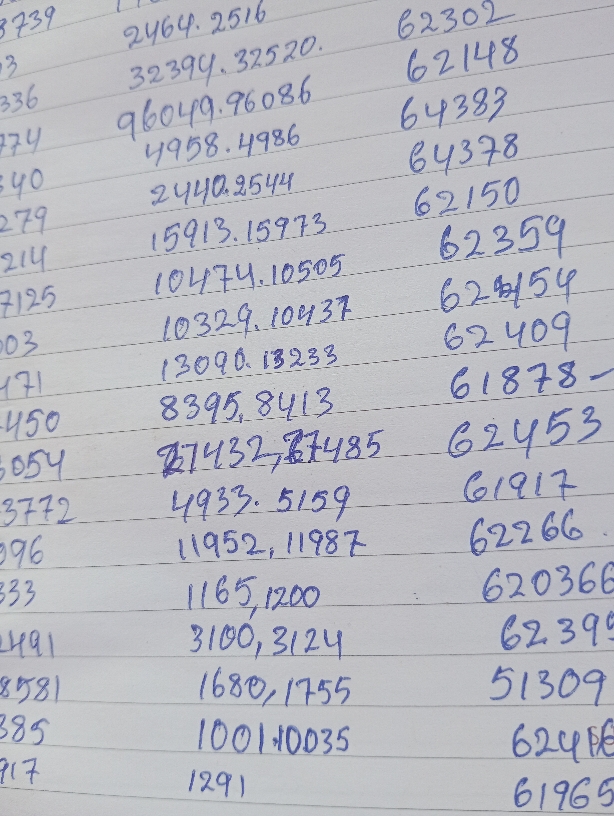 3739 2464.2516 62302
3 32394.32520. 62148
336 96049.96086 64383
774 4958.4986 64378
340 2440.2544 62150
279 15913.15973 62359
214 10474.10505
7125 10329.10437 62409
003 13090.13233 61878-
471 8395,8413 62453
450 4933.5159 61917
3054 11952,11987 62266.
3772 1165,1200 620366
096 3100,3124 62399
333 1680,1755 51309
2491
8581 1291 61965
385
917